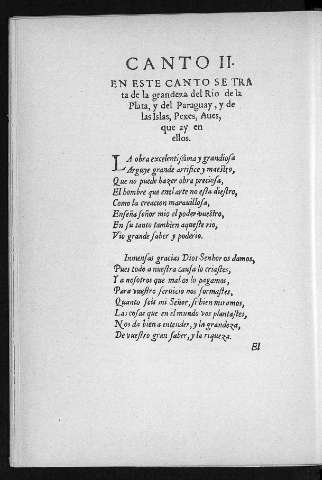 CANTO II.
EN ESTE CANTO SE TRA
ta de la grandeza del Rio de la
Plata, y del Paraguay, y de
las Islas, Pexes, Aues,
que ay en
ellos.
LA obra excelentissima y grandiosa
Arguye grande artifice y maestro,
Que no puede hazer obra preciosa,
El hombre que enel arte no esta diestro,
Como la creacion marauillosa,
Enseña señor mio el poder vuestro,
En su tanto tambien aqueste rio,
Vio grande saber y poderio.
Inmensas gracias Dios Senhor os damos,
Pues todo a nuestra causa lo criastes,
Y a nosotros que mal os lo pagamos,
Para vuestro seruicio nos formastes,
Quanto seis mi Señor, si bien miramos,
Las cosas que en el mundo vos plantastes,
Nos da bien a entender, y la grandeza,
De vuestro gran saber, y la riqueza.
El